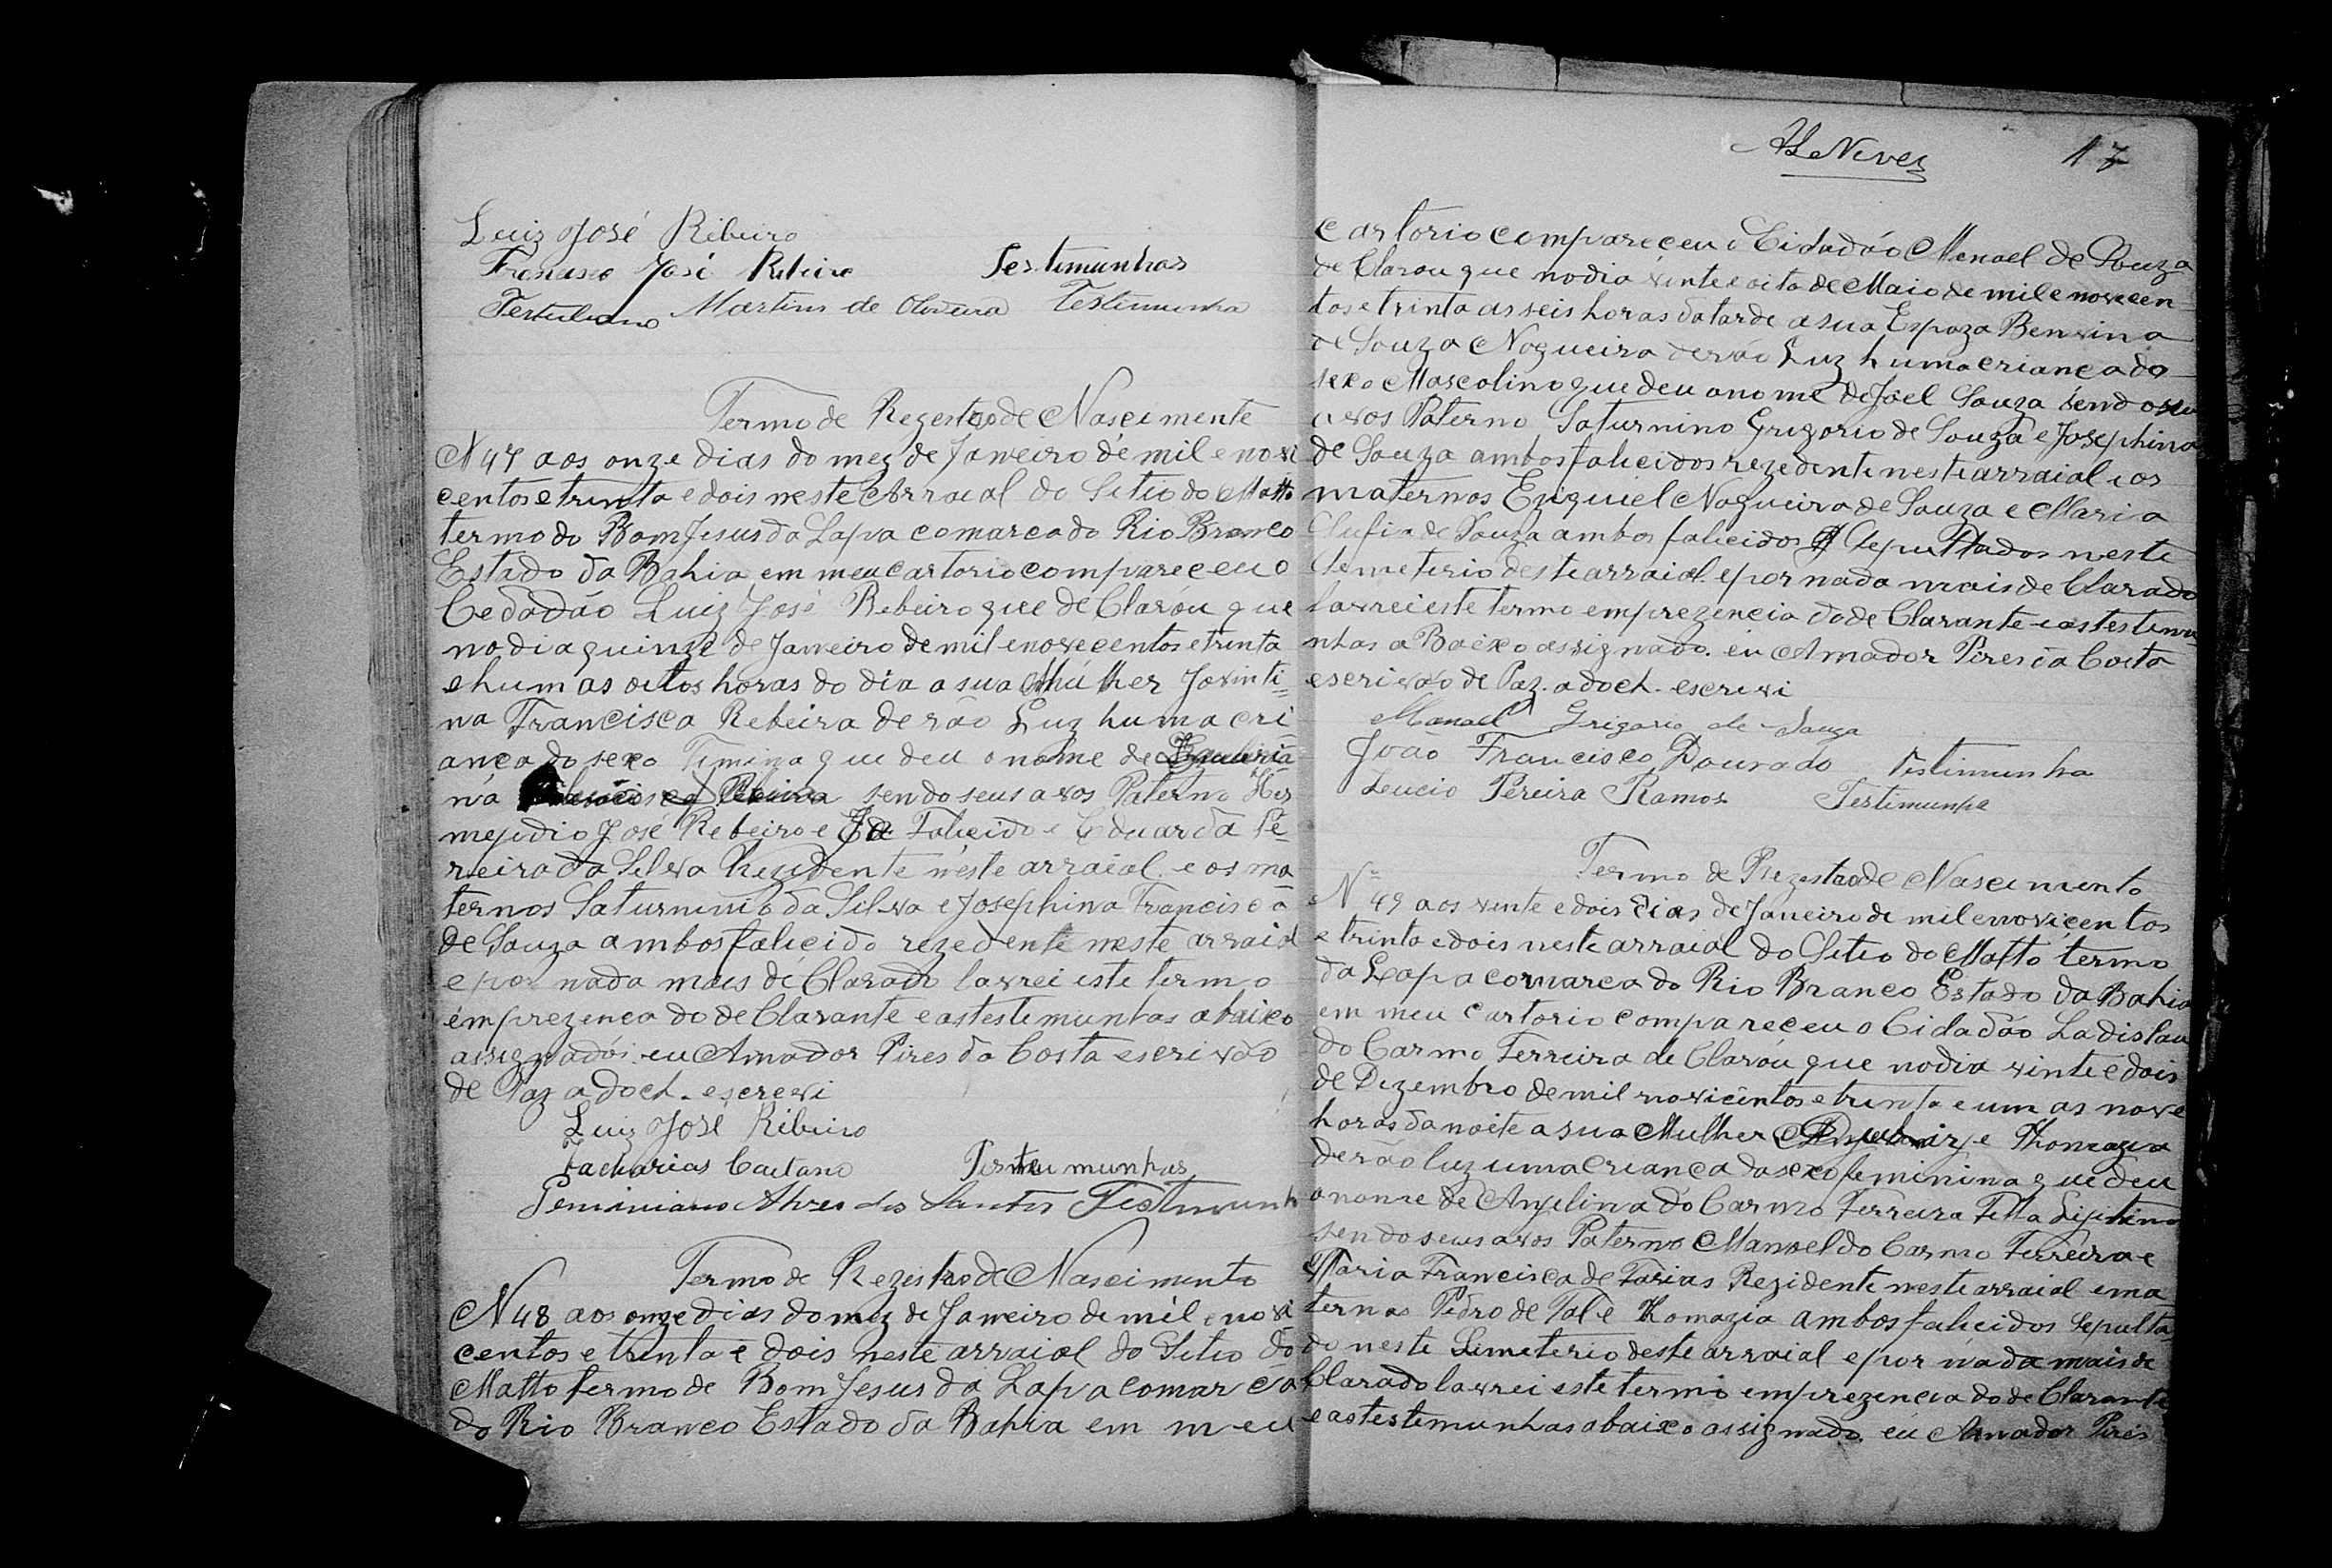 Luiz José Ribeiro
Francisco José Ribeiro Testimunhas
Testuliano Martins de Oliveira Testimunha
Termo de Regestro de Nascimente
N 47 aos onze dias do mez de Janeiro de mil e novi
centos e trinta e dois neste Arraial do Sitio do Matto
termo do Bom Jesus da Lapa comarca do Rio Branco
Estado da Bahia em meu cartorio compareceu o
Cedadão Luiz José Rebeiro que de Clarou que
no dia quinze de Janeiro de mil e novecentos e trinta
e hum as oitos horas do dia a sua Mulher Jovinti=
na Francisca Rebeira derão Luz huma cri
anca do sexo Femina que deu o nome de
na sendo seus avos Paterno Her
mejidio José Rebeiro e Falicido e Eduarda Pe-
reira da Silva Rezidente neste arraial e os ma
ternos Saturnino da Silva e Josephina Francisca
de Souza ambos falicido rezedente neste arraial
e por nada mais de Clarado lavrei este termo
em prezenca do de Clarante e as testemunhas abaixo
assignados eu Amador Pires da Costa escrivão
de Paz adoch. escrevi
Luiz José Ribeiro
Zacharias Caetano Testemunhas
Geminiano Alves dos Santos Testimunh
Termo de Rezistro de Nascimento
N 48 aos onze dias do mez de Janeiro de mil e novi
centos e trinta e dois neste arraial do Sitio do
Matto termo de Bom Jesus da Lapa comarca
do Rio Branco Estado da Bahia em meu
Neves 17
cartorio compareceu o Cidadão Manoel de Souza
de Clarou que no dia vinte e oito de Maio de mil e novecen
tos e trinta as seis horas da tarde a sua Espoza Benvina
de Souza Nogueira derão Luz huma crianca do
sexo Mascolino que deu o nome de Joel Souza sendo seu
avos Paterno Saturnino Grigorio de Souza e Josephina
de Souza ambos falicidos rezedente neste arraial e os
maternos Eziquiel Nogueira de Souza e Maria
de Souza ambos falicidos Sepultados neste
Semeterio deste arraial e por nada mais de Clarado
lavrei este termo em prezencia do de Clarante e as testimu
nhas a Baixo assignado. eu Amador Pires da Costa
escrivão de Paz. adoch. escrevi
Manoel Grigorio de Souza
João Francisco Dourado Testimunha
Leucio Pereira Ramos Testimunha
Termo de Rezestro de Nascimento
Nº 49 aos vinte e dois dias de Janeiro de mil e novicentos
e trinta e dois neste arraial do Setio do Matto termo
da Lapa comarca do Rio Branco Estado da Bahia
em meu cartorio compareceu o Cidadão Ladislau
do Carmo Ferreira de Clarou que no dia vinte e dois
de Dezembro de mil novicentos e trinta e um as nove
horas da noite a sua Mulher Thomazia
derão luz uma crianca do sexo feminina que deu
o nome de Anjelina do Carmo Ferreira Filla Lijitima
sendo seus avos Paterno Manoel do Carmo Ferreira e
Maria Francisca de Farias Rezidente neste arraial e ma
ternos Pedro de Tal e Thomazia ambos falicidos Sepulta
do neste Simeterio deste arraial e por nada mais de
Clarado lavrei este termo em prezencia do de Clarante
e as testemunhas abaixo assignado. eu Amador Pires